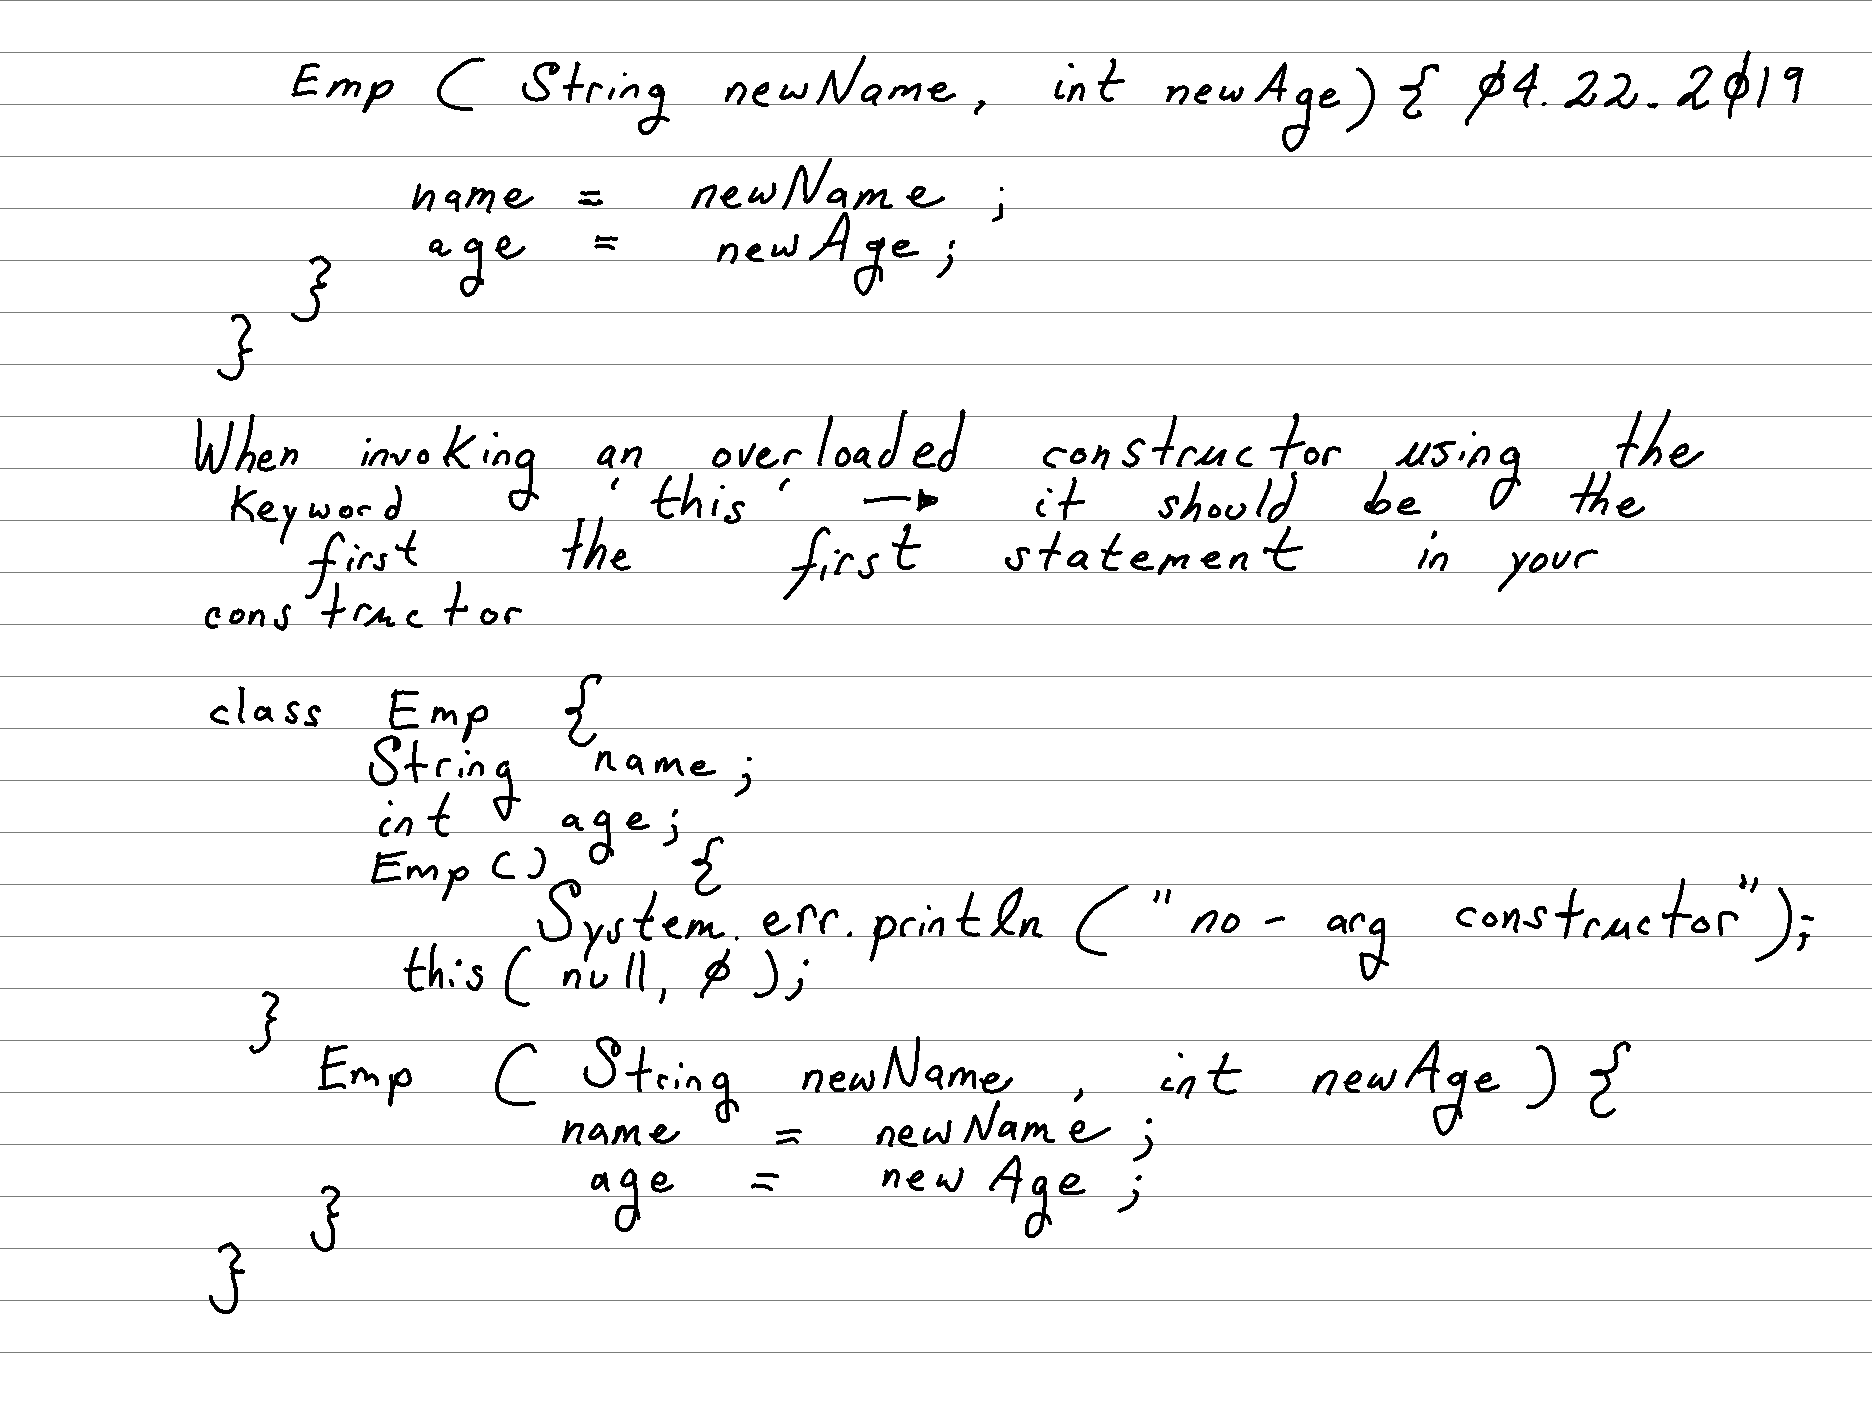 Emp ( String newName, int newAge) { 04.22.2019
name = newName ;
age = newAge;
}
}
When invoking an overloaded constructor using the
keyword 'this' → it should be the
first the first statement in your
constructor
class Emp {
String name;
int age;
Emp() {
System.err.println ("no - arg constructor");
this( null, 0 );
}
Emp ( String newName , int newAge ) {
name = newName ;
age = newAge ;
}
}